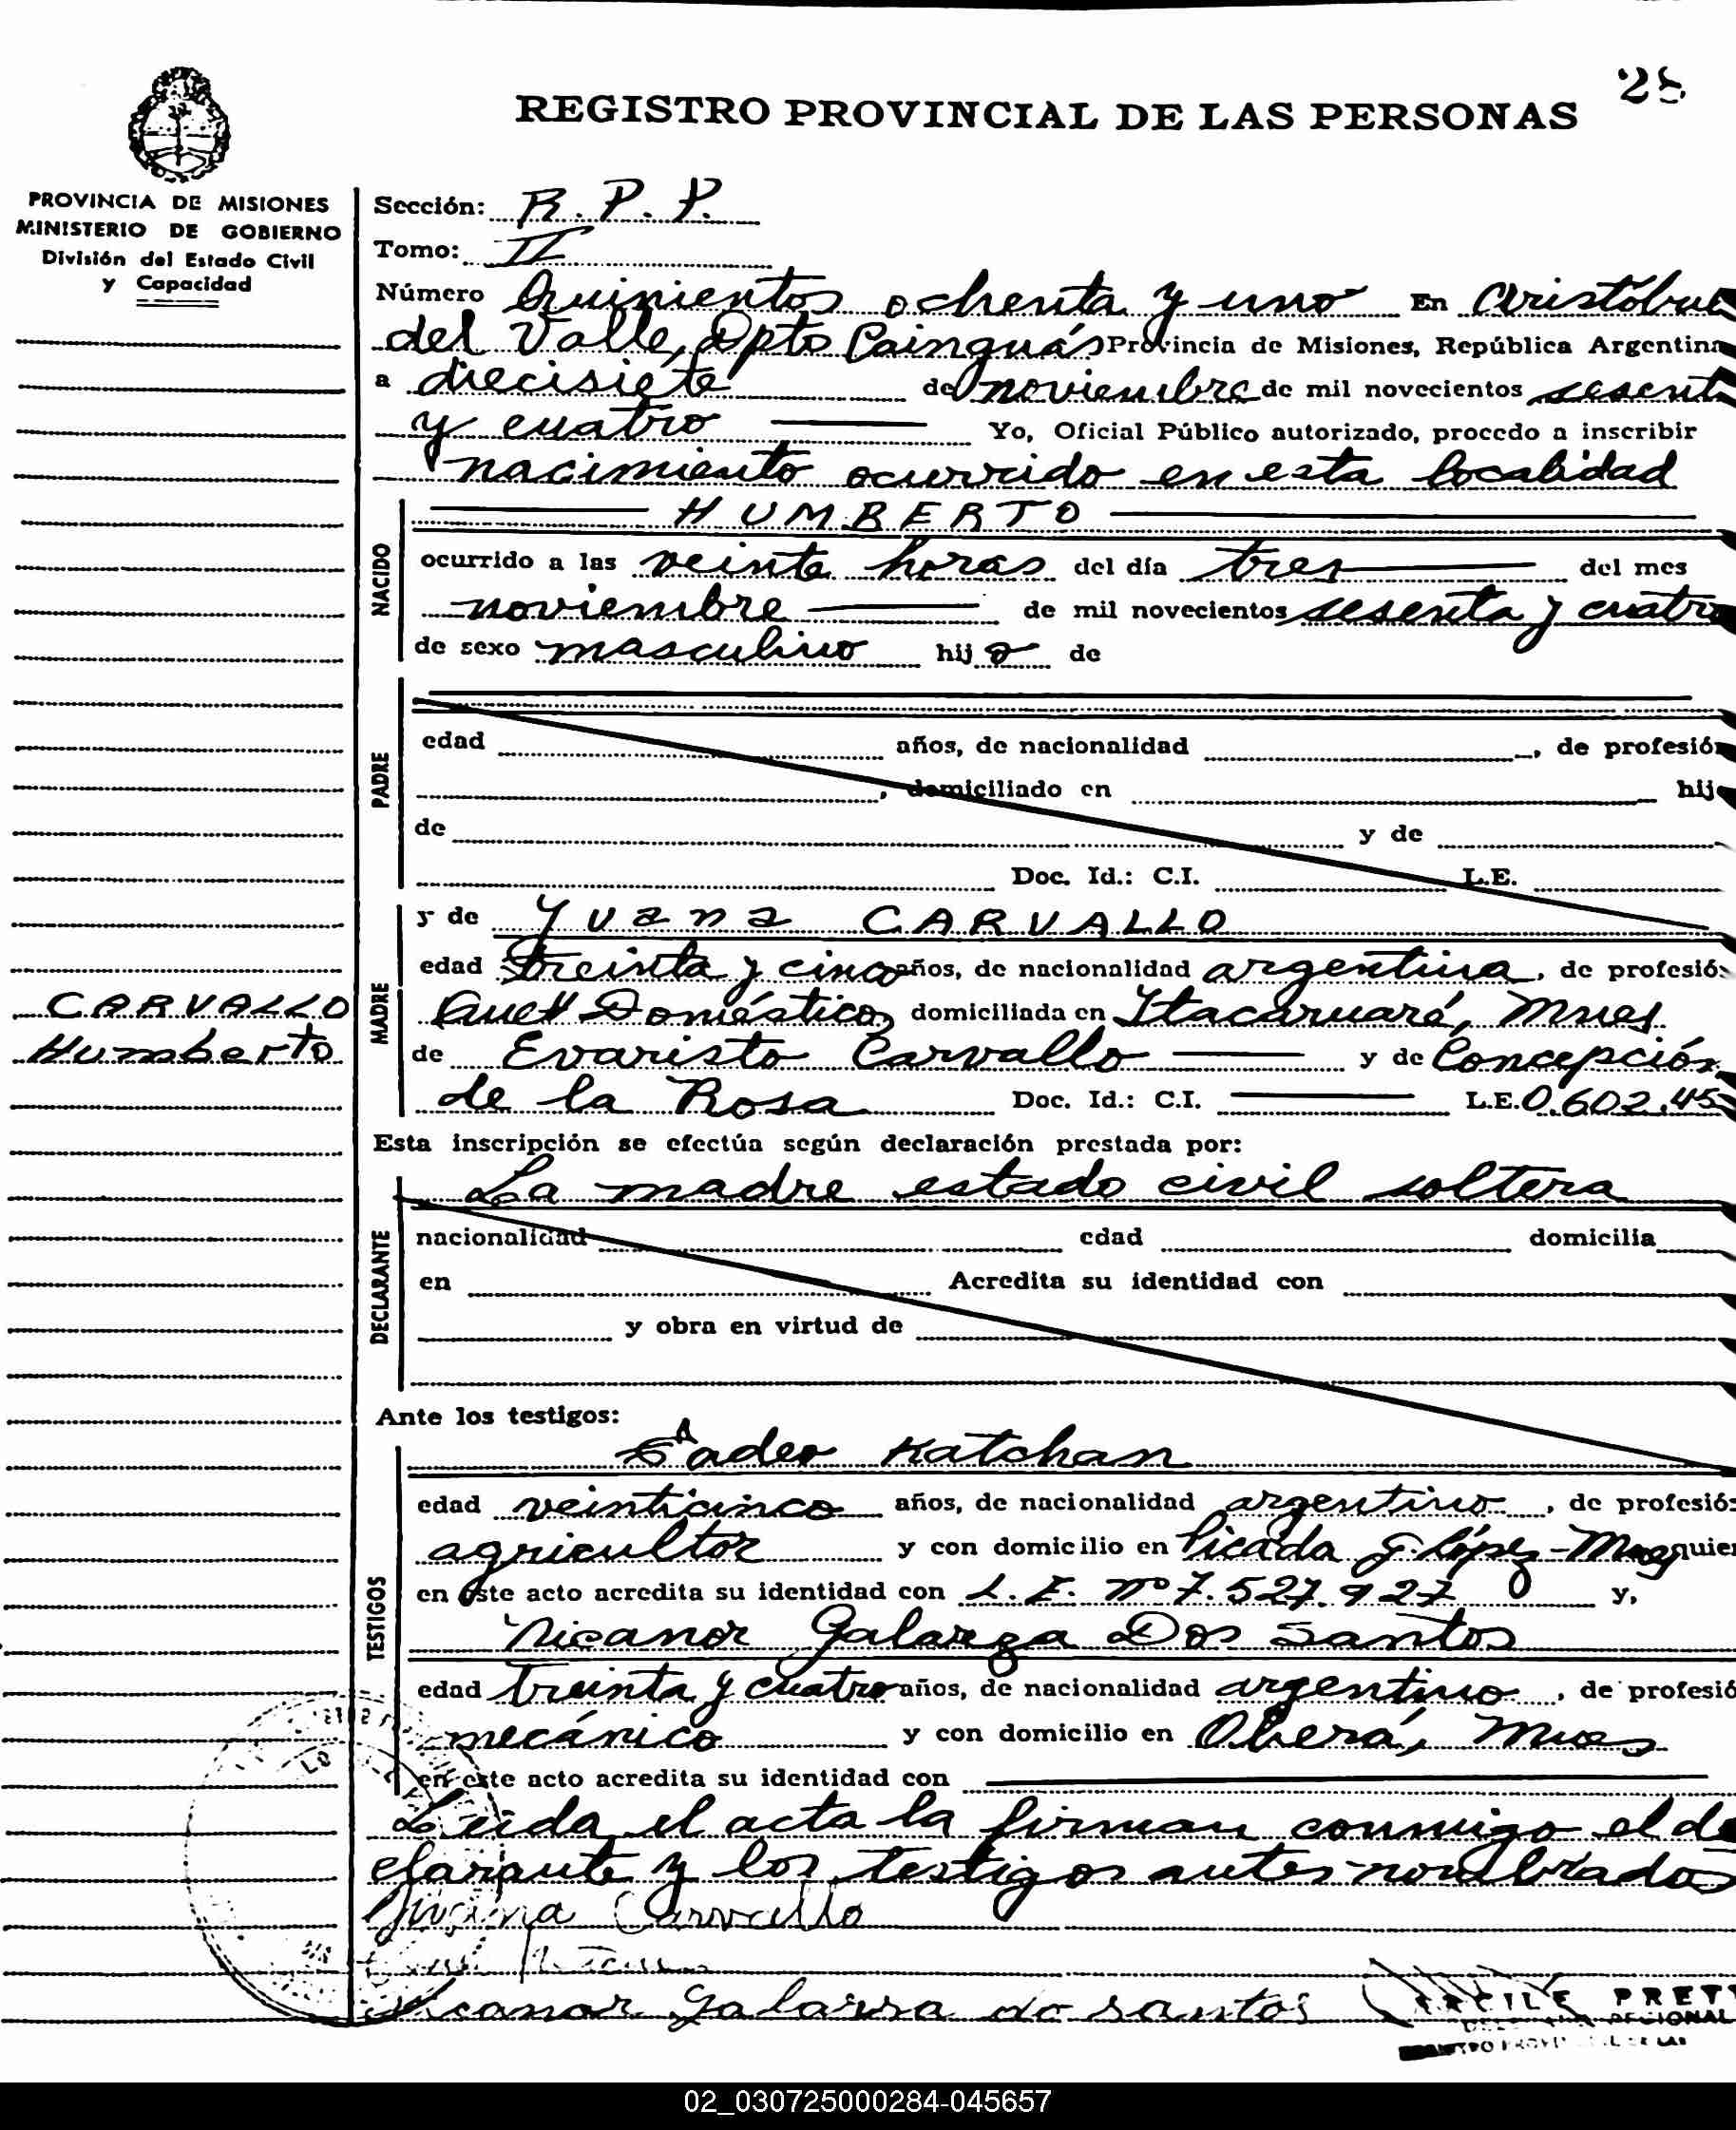 REGISTRO PROVINCIAL DE LAS PERSONAS
PROVINCIA DE MISIONES
MINISTERIO DE GOBIERNO
División del Estado Civil
y Capacidad
Sección: R. P. P.
Tomo: II
Número Quinientos ochenta y uno En Aristóbul
del Valle, Dpto Cainguás Provincia de Misiones, República Argentina
a diecisiete de noviembre de mil novecientos sesent
y cuatro Yo, Oficial Público autorizado, procedo a inscribir
nacimiento ocurrido en esta localidad
NACIDO
HUMBERTO
ocurrido a las veinte horas del día tres del mes
noviembre de mil novecientos sesenta y cuatro
de sexo masculino hijo de
PADRE
edad años, de nacionalidad , de profesió
, domiciliado en hij
de y de
Doc. Id.: C.I. L.E.
MADRE
y de Yuana CARVALLO
edad treinta y cinco años, de nacionalidad argentina, de profesió
Quet Doméstico, domiciliada en Itacaruaré, Mnes
de Evaristo Carvallo y de Concepción
de la Rosa Doc. Id.: C.I. L.E. 0.602.45
CARVALLO
Humberto
Esta inscripción se efectúa según declaración prestada por:
DECLARANTE
La madre estado civil soltera
nacionalidad edad domicilia
en Acredita su identidad con
y obra en virtud de
Ante los testigos:
TESTIGOS
Tadeo Katchan
edad veinticinco años, de nacionalidad argentino, de profesió
agricultor y con domicilio en Picada G. López-Mnes quien
en este acto acredita su identidad con L.E. nº 7.527.927 y,
Nicanor Galarza Dos Santos
edad treinta y cuatro años, de nacionalidad argentino, de profesió
mecánico y con domicilio en Oberá, Mnes
en este acto acredita su identidad con
Leida el acta la firman conmigo el de
clarante y los testigos antes nombrados
Juana Carvallo
Nicanor Galarza do santos
PRET
REGIONAL
02_030725000284-045657